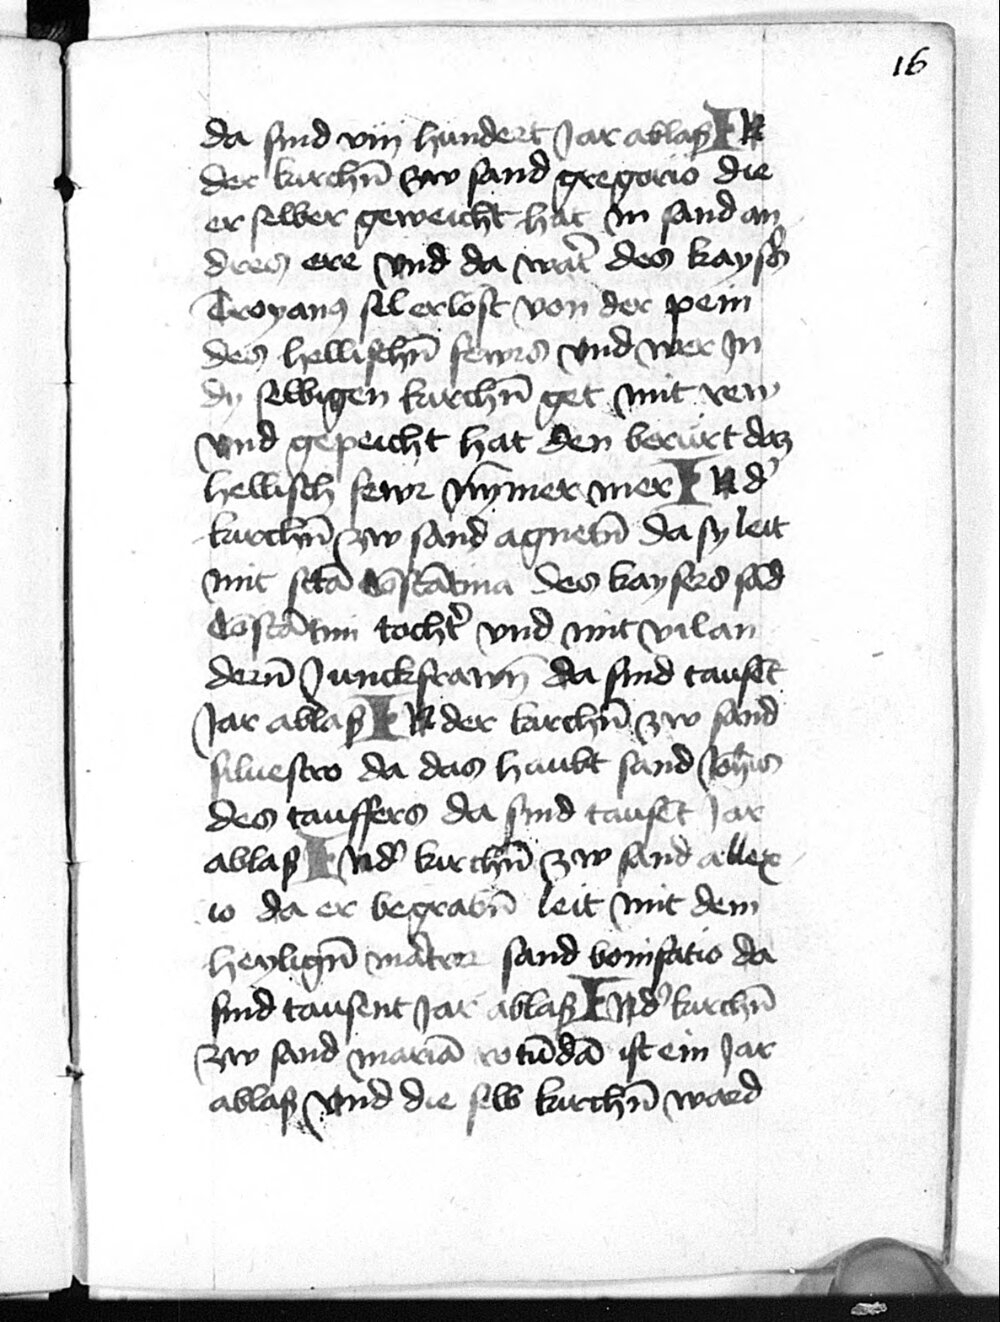 16
da sind viij hundert Jar ablaß IN
der kirchn̄ zw sand gregorio die
er selber geweicht hat in sand an
dres ere vnd da wart̄ des kaysers
Troyanus sel erlost von der pein
des hellischn̄ fewrs vnd wer In
dy selbigen kirchn̄ get mit rew
vnd gepeicht hat den berürt daz
hellisch fewr nym̄er mer IN d'
kirchn̄ zw sand agnetn̄ da sy leit
mit sctā Cōstātina des kaysers sād
Cōstātini tocht' vnd mit vil an
dern̄ Junckfrawn̄ da sind tausēt
Jar ablaß IN der kirchn̄ zw sand
siluestro da das haubt sand Joh̄es
des tauffers da sind tausēt Jar
ablaß IN d' kirchn̄ zw sand allex
io da er begrabn̄ leit mit dem
heylign̄ mārtrer sand bonifatio da
sind tausent Jar ablaß IN d' kirchn̄
zw sand mariā rotūdā ist ein Jar
ablaß vnd die selb kirchn̄ ward